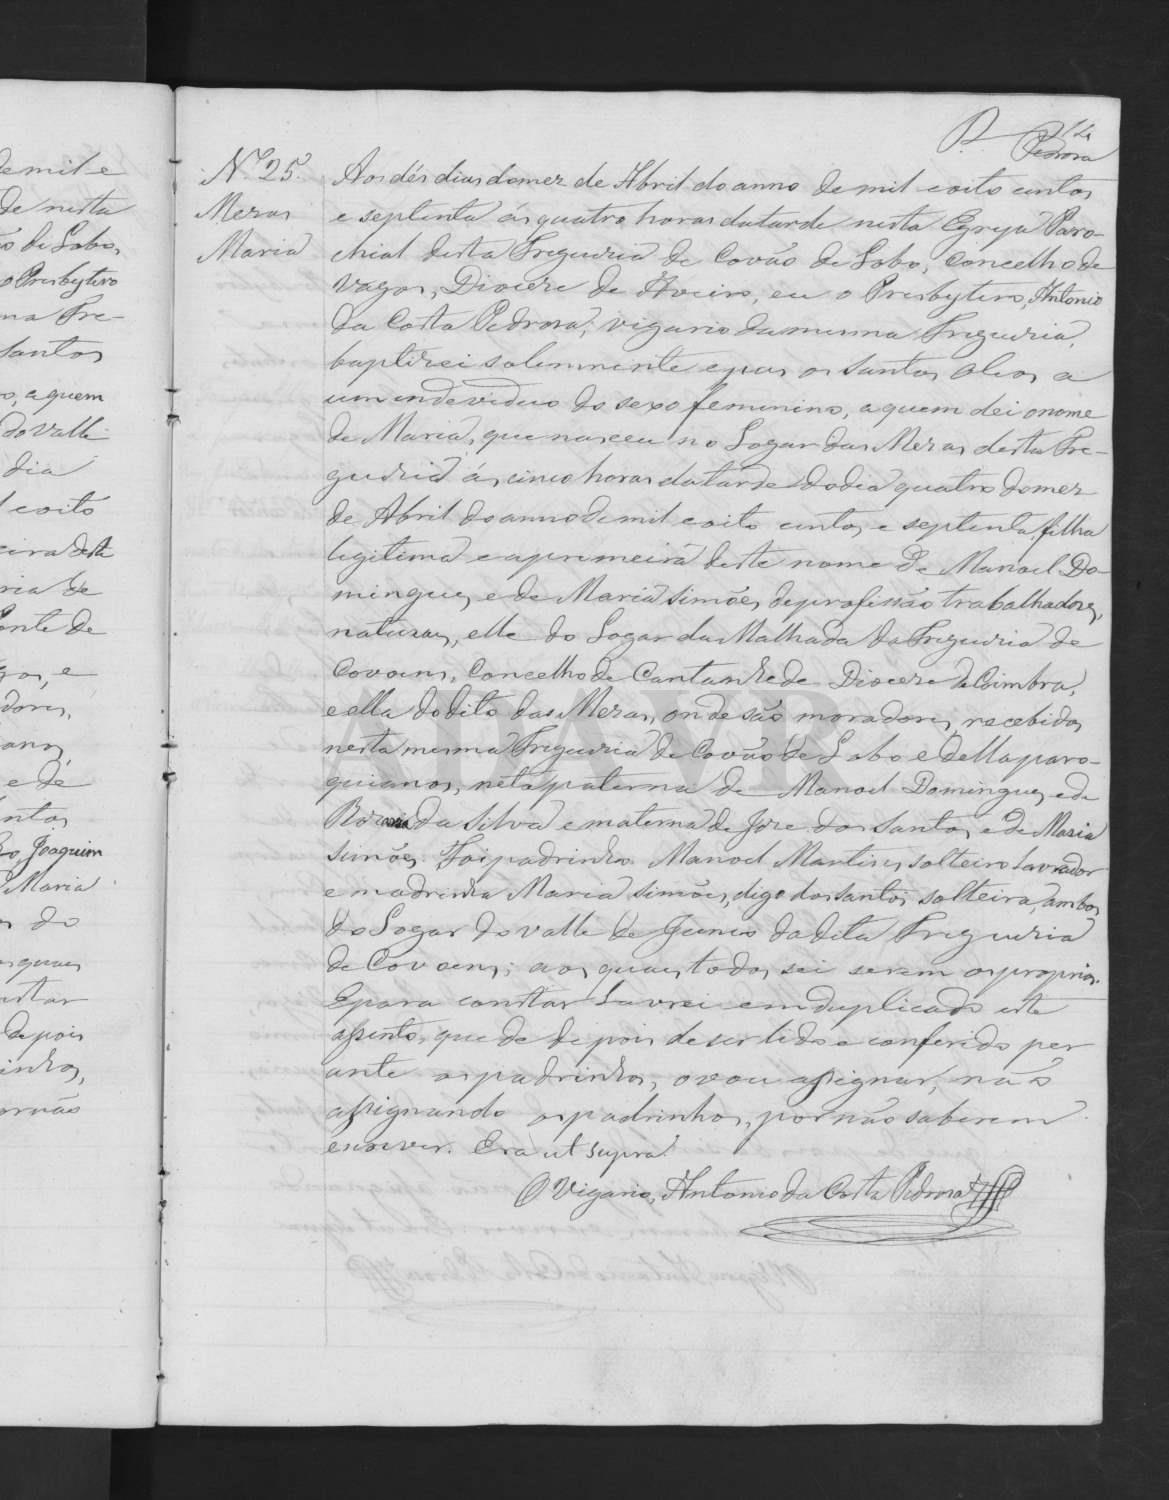 14
Pedrosa
Nº 25.
Mezas
Maria
Aos dés dias do mez de Abril do anno de mil e oito centos
e septenta ás quatro horas da tarde nesta Egreja Paro-
chial desta Freguezia de Covão de Lobo, Concelho de
Vagos, Diocere de Aveiro, eu o Presbytero, Antonio
da Costa Pedrosa, vigario da mesma Freguezia,
baptizei solemnemente e puz os santos oleos a
um endeviduo do sexo femenino, a quem dei o nome
de Maria, que nasceu no Logar das Mezas desta Fre-
guezia ás cinco horas da tarde do dia quatro do mez
de Abril do anno de mil e oito centos e septenta, filha
legitima e a primeira deste nome de Manoel Do-
mingues e de Maria Simões, de profissão trabalhadores,
naturaes, elle do Logar da Malhada da Freguezia de
Covoens, Concelho de Cantanhede Diocere de Coimbra,
e ella do dito das Mezas, onde são moradores, recebidos
nesta mesma Freguezia de Covão de Lobo e della paro-
quianos, néta paterna de Manoel Domingues e de
da Silva e materna de Jose dos Santos e de Maria
Simões. Foi padrinho Manoel Martins, solteiro Lavrador
e madrinha Maria Simões, digo dos Santos solteira, ambos
do Logar do Valle de da dita Freguezia
de Covoens; aos quaes todos sei serem os proprios.
E para constar Lavrei em duplicado este
assento, que de depois de ser lido e conferido per
ante os padrinhos, o vou assignar, não
assignando os padrinhos, por não saberem
escrever. Era ut supra.
O Vigario, Antonio da Costa Pedrosa
ADAVR
demil e
de nesta
ão de Lobo,
o Presbytero
ma Fre-
Santos
o, a quem
do Valle
dia
e oito
eira deste
ria de
onte de
gos, e
dores,
anos
e de
entos
ro, Joaquim
Maria
s do
s quaes
nstar
depois
inhos,
or não